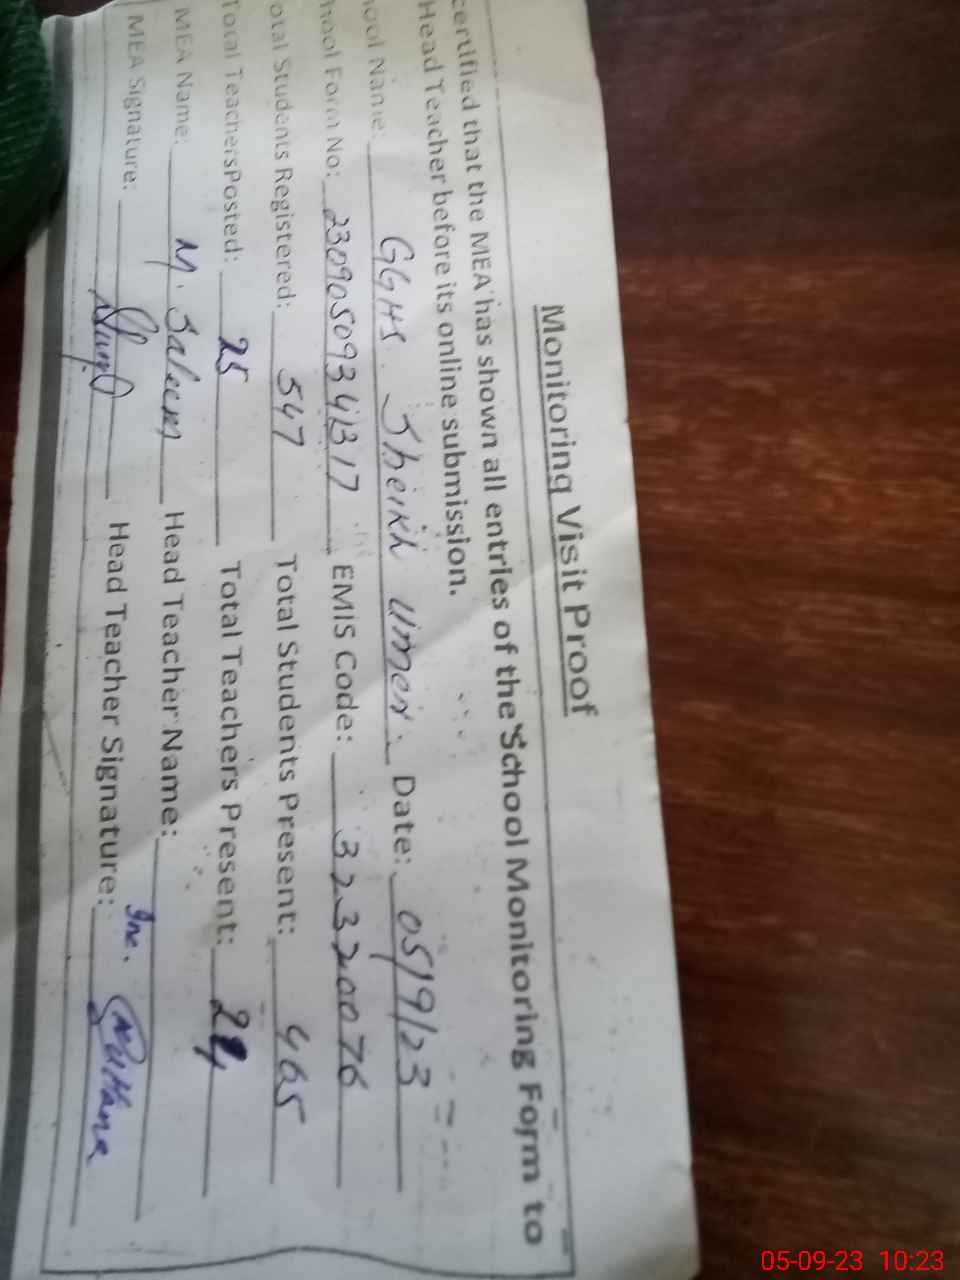 Monitoring Visit Proof
certified that the MEA has shown all entries of the School Monitoring Form to
Head Teacher before its online submission.
hool Name: GGHS. Sheikh Umer. Date: 05/9/23
hool Form No: EMIS Code: 32320076
otal Students Registered: 547 Total Students Present: 465
Total TeachersPosted: 25 Total Teachers Present: 24
MEA Name: M. Saleem Head Teacher Name:
MEA Signature: Head Teacher Signature: Inc.
05-09-23 10:23